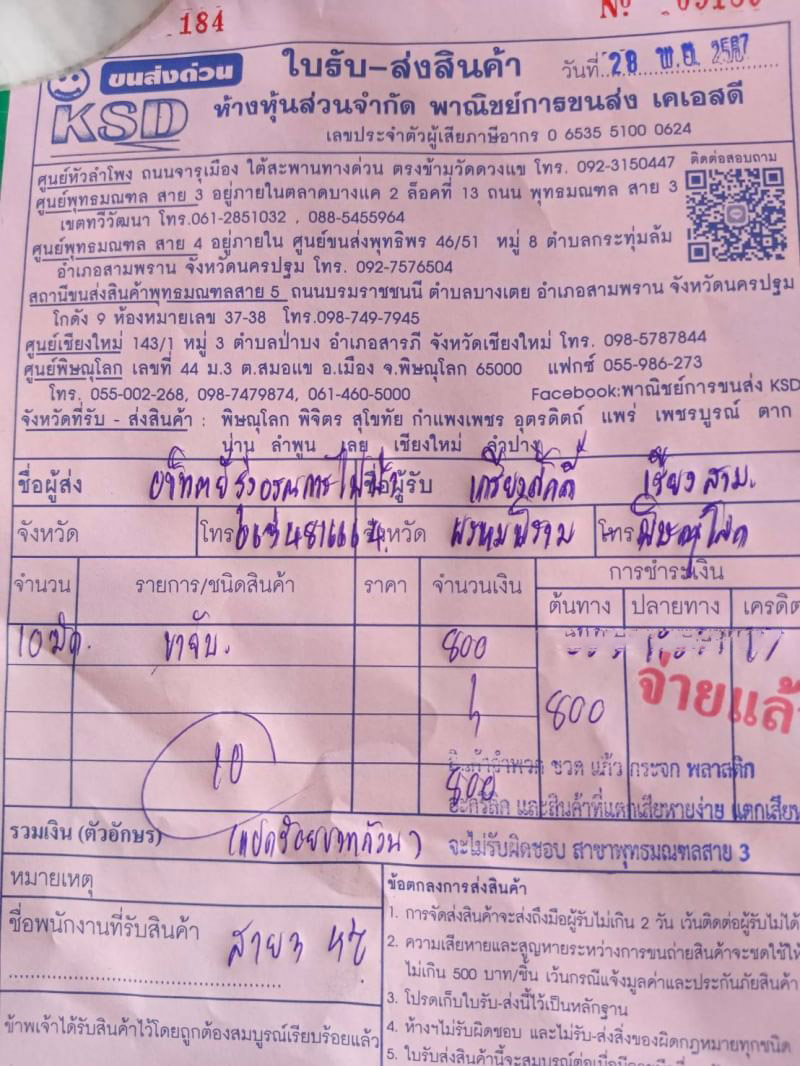 184 Nº
ขนส่งด่วน ใบรับ-ส่งสินค้า วันที่ 28 พ.ย. 2567
KSD ห้างหุ้นส่วนจำกัด พาณิชย์การขนส่ง เคเอสดี
เลขประจำตัวผู้เสียภาษีอากร 0 6535 5100 0624
ศูนย์หัวลำโพง ถนนจารุเมือง ใต้สะพานทางด่วน ตรงข้ามวัดดวงแข โทร. 092-3150447 ติดต่อสอบถาม
ศูนย์พุทธมณฑล สาย 3 อยู่ภายในตลาดบางแค 2 ล็อคที่ 13 ถนน พุทธมณฑล สาย 3
เขตทวีวัฒนา โทร.061-2851032 , 088-5455964
ศูนย์พุทธมณฑล สาย 4 อยู่ภายใน ศูนย์ขนส่งพุทธิพร 46/51 หมู่ 8 ตำบลกระทุ่มล้ม
อำเภอสามพราน จังหวัดนครปฐม โทร. 092-7576504
สถานีขนส่งสินค้าพุทธมณฑลสาย 5 ถนนบรมราชชนนี ตำบลบางเตย อำเภอสามพราน จังหวัดนครปฐม
โกดัง 9 ห้องหมายเลข 37-38 โทร.098-749-7945
ศูนย์เชียงใหม่ 143/1 หมู่ 3 ตำบลป่าบง อำเภอสารภี จังหวัดเชียงใหม่ โทร. 098-5787844
ศูนย์พิษณุโลก เลขที่ 44 ม.3 ต.สมอแข อ.เมือง จ.พิษณุโลก 65000 แฟกซ์ 055-986-273
โทร. 055-002-268, 098-7479874, 061-460-5000 Facebook:พาณิชย์การขนส่ง KSD
จังหวัดที่รับ - ส่งสินค้า : พิษณุโลก พิจิตร สุโขทัย กำแพงเพชร อุตรดิตถ์ แพร่ เพชรบูรณ์ ตาก
น่าน ลำพูน เลย เชียงใหม่ ลำปาง
ชื่อผู้ส่ง ชื่อผู้รับ เกรียงศักดิ์
จังหวัด โทร จังหวัด พรหมพิราม โทร พิษณุโลก
จำนวน รายการ/ชนิดสินค้า ราคา จำนวนเงิน การชำระเงิน
ต้นทาง ปลายทาง เครดิต
10 มัด. ขาจับ. 800
จ่ายแล้ว
800
10
สินค้าจำพวก ขวด แก้ว กระจก พลาสติก
800
อะคริลิค และสินค้าที่แตกเสียหายง่าย แตกเสียหาย
รวมเงิน (ตัวอักษร) (แปดร้อยบาทถ้วน) จะไม่รับผิดชอบ สาขาพุทธมณฑลสาย 3
หมายเหตุ
ข้อตกลงการส่งสินค้า
1. การจัดส่งสินค้าจะส่งถึงมือผู้รับไม่เกิน 2 วัน เว้นติดต่อผู้รับไม่ได้
ชื่อพนักงานที่รับสินค้า สาย 3
2. ความเสียหายและสูญหายระหว่างการขนถ่ายสินค้าจะชดใช้ให้
ไม่เกิน 500 บาท/ชิ้น เว้นกรณีแจ้งมูลค่าและประกันภัยสินค้า
3. โปรดเก็บใบรับ-ส่งนี้ไว้เป็นหลักฐาน
ข้าพเจ้าได้รับสินค้าไว้โดยถูกต้องสมบูรณ์เรียบร้อยแล้ว
4. ห้างฯไม่รับผิดชอบ และไม่รับ-ส่งสิ่งของผิดกฎหมายทุกชนิด
5. ใบรับส่งสินค้านี้จะสมบูรณ์ต่อเมื่อ